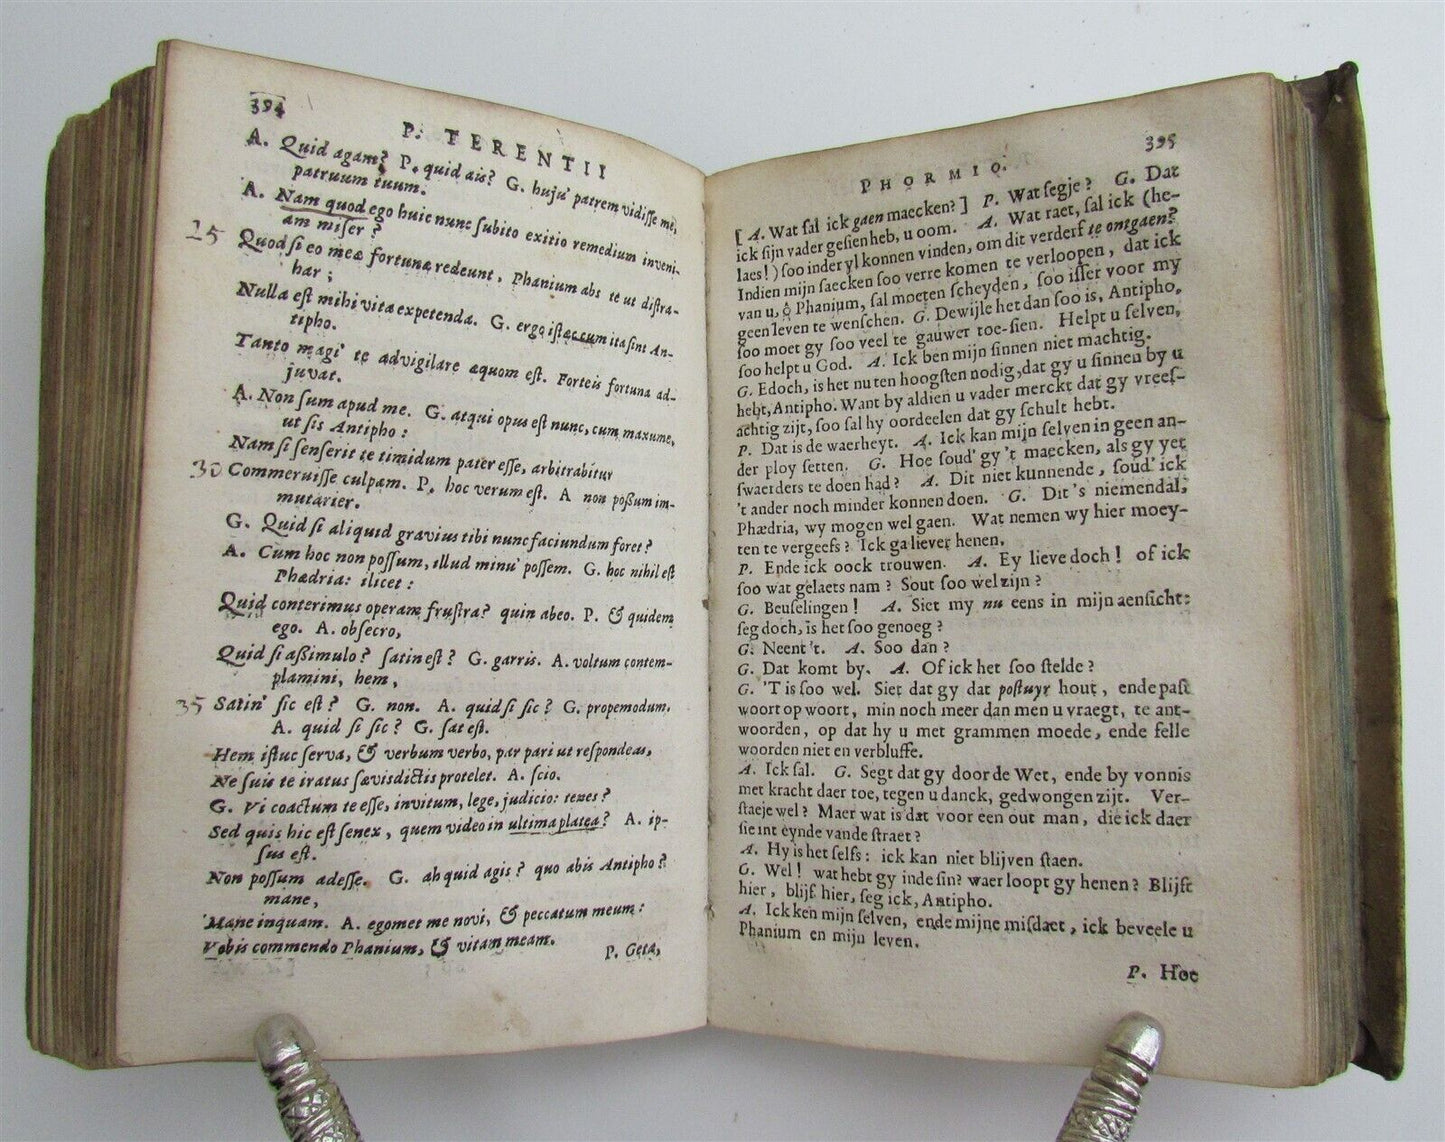 394
P. TERENTII
A. Quid agam? P. quid ais? G. huju' patrem vidisse me,
patruum tuum.
A. Nam quod ego huic nunc subito exitio remedium inveni-
am miser?
25 Quod si eo meæ fortunæ redeunt, Phanium abs te ut distra-
har;
Nulla est mihi vita expetenda. G. ergo istæc cum ita sint An-
tipho.
Tanto magi' te advigilare æquom est. Forteis fortuna ad-
juvat.
A. Non sum apud me. G. atqui opus est nunc, cum maxume,
ut sis Antipho:
Nam si senserit te timidum pater esse, arbitrabitur
30 Commeruisse culpam. P. hoc verum est. A non possum im-
mutarier.
G. Quid si aliquid gravius tibi nunc faciundum foret?
A. Cum hoc non possum, illud minu' possem. G. hoc nihil est
Phædria: ilicet:
Quid conterimus operam frustra? quin abeo. P. & quidem
ego. A. obsecro,
Quid si aßimulo? satin est? G. garris. A. voltum contem-
plamini, hem,
35 Satin' sic est? G. non. A. quid si sic? G. propemodum.
A. quid si sic? G. sat est.
Hem istuc serva, & verbum verbo, par pari ut respondeas,
Ne suis te iratus sævisdictis protelet. A. scio.
G. Vi coactum te esse, invitum, lege, judicio: tenes?
Sed quis hic est senex, quem video in ultima platea? A. ip-
sus est.
Non possum adesse. G. ah quid agis? quo abis Antipho?
mane,
Mane inquam. A. egomet me novi, & peccatum meum:
Vobis commendo Phanium, & vitam meam.
P. Geta,
395
PHORMIO.
[A. Wat sal ick gaen maecken?] P. Wat segje? G. Dat
ick sijn vader gesien heb, u oom. A. Wat raet, sal ick (he-
laes!) soo inder yl konnen vinden, om dit verderf te ontgaen?
Indien mijn saecken soo verre komen te verloopen, dat ick
van u, ô Phanium, sal moeten scheyden, soo isser voor my
geen leven te wenschen. G. Dewijle het dan soo is, Antipho,
soo moet gy soo veel te gauwer toe-sien. Helpt u selven,
soo helpt u God. A. Ick ben mijn sinnen niet machtig.
G. Edoch, is het nu ten hoogsten nodig, dat gy u sinnen by u
hebt, Antipho. Want by aldien u vader merckt dat gy vrees-
achtig zijt, soo sal hy oordeelen dat gy schult hebt.
P. Dat is de waerheyt. A. Ick kan mijn selven in geen an-
der ploy setten. G. Hoe soud' gy 't maecken, als gy yet
swaerders te doen had? A. Dit niet kunnende, soud' ick
't ander noch minder konnen doen. G. Dit 's niemendal,
Phædria, wy mogen wel gaen. Wat nemen wy hier moey-
ten te vergeefs? Ick ga liever henen.
P. Ende ick oock trouwen. A. Ey lieve doch! of ick
soo wat gelaets nam? Sout soo wel zijn?
G. Beuselingen! A. Siet my nu eens in mijn aensicht:
seg doch, is het soo genoeg?
G. Neent 't. A. Soo dan?
G. Dat komt by. A. Of ick het soo stelde?
G. 'T is soo wel. Siet dat gy dat postuyr hout, ende past
woort op woort, min noch meer dan men u vraegt, te ant-
woorden, op dat hy u met grammen moede, ende felle
woorden niet en verbluffe.
A. Ick sal. G. Segt dat gy door de Wet, ende by vonnis
met kracht daer toe, tegen u danck, gedwongen zijt. Ver-
staeje wel? Maer wat is dat voor een out man, die ick daer
sie int eynde vande straet?
A. Hy is het selfs: ick kan niet blijven staen.
G. Wel! wat hebt gy inde sin? waer loopt gy henen? Blijft
hier, blijf hier, seg ick, Antipho.
A. Ick ken mijn selven, ende mijne misdaet, ick beveele u
Phanium en mijn leven.
P. Hoe